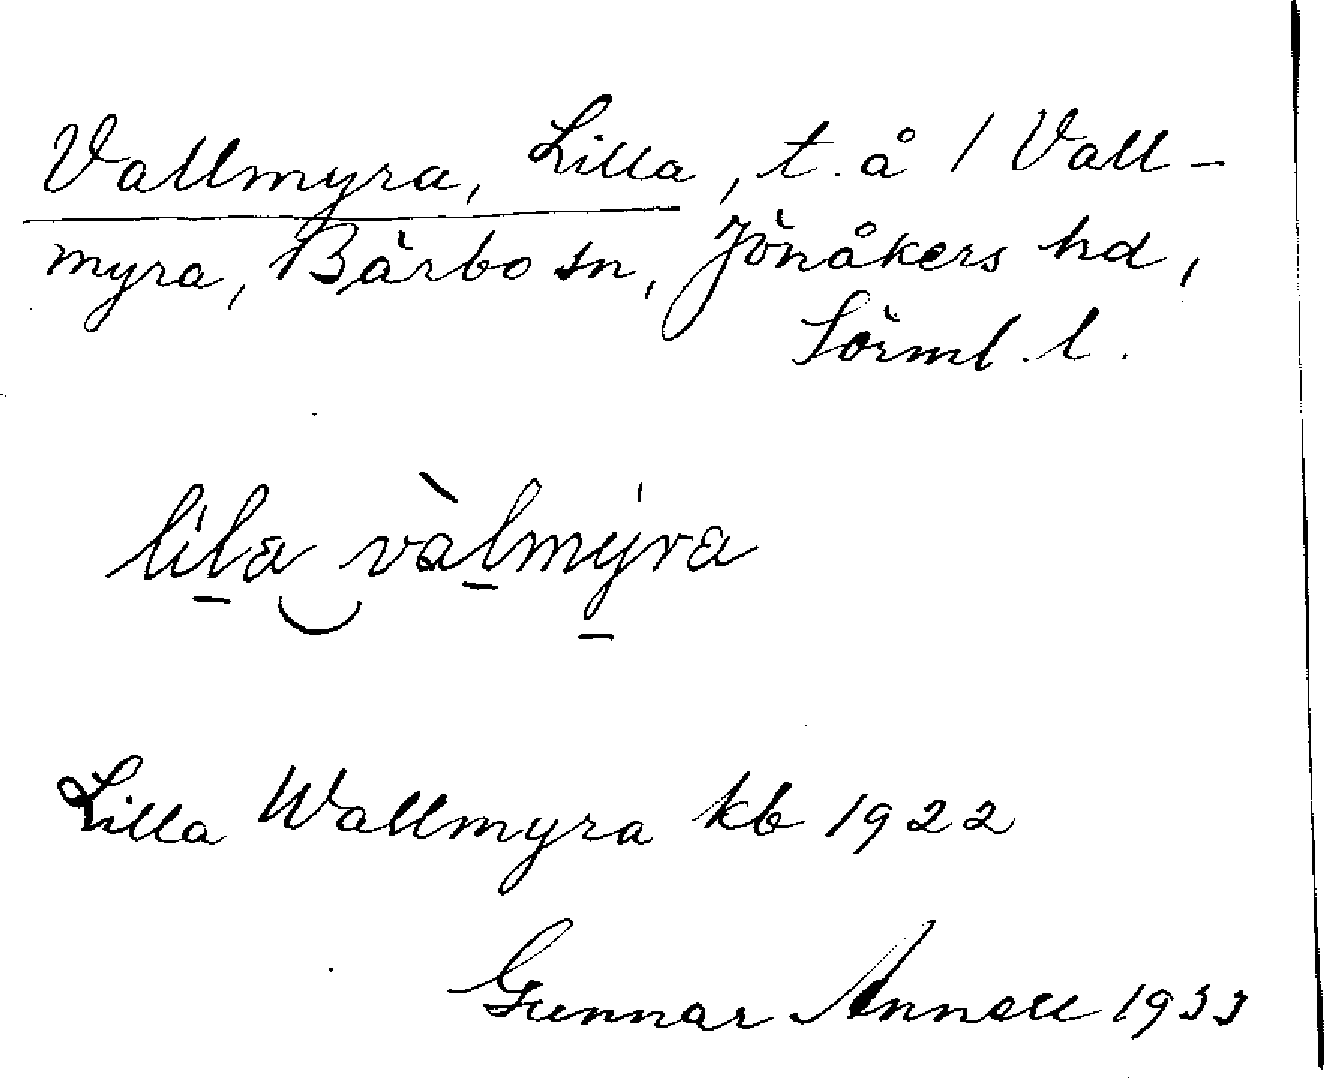 Vallmyra, Lilla, t. å / Vall-
myra, Bärbo sn, Jönåkers hd,
Sörml. l.
lila valmyra
Lilla Wallmyra kb 1922
Gunnar Annell 1933